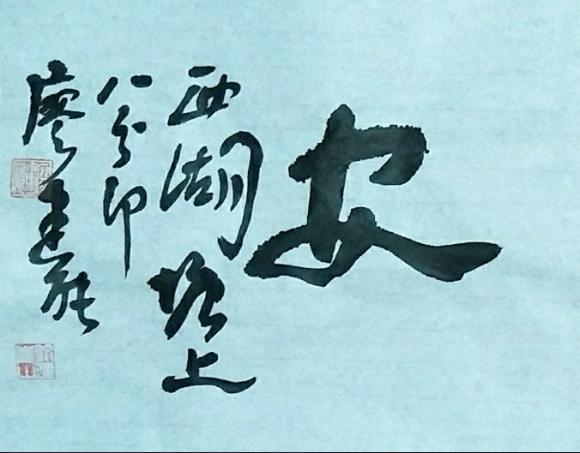 安
西湖塘上
八分印
廖建能